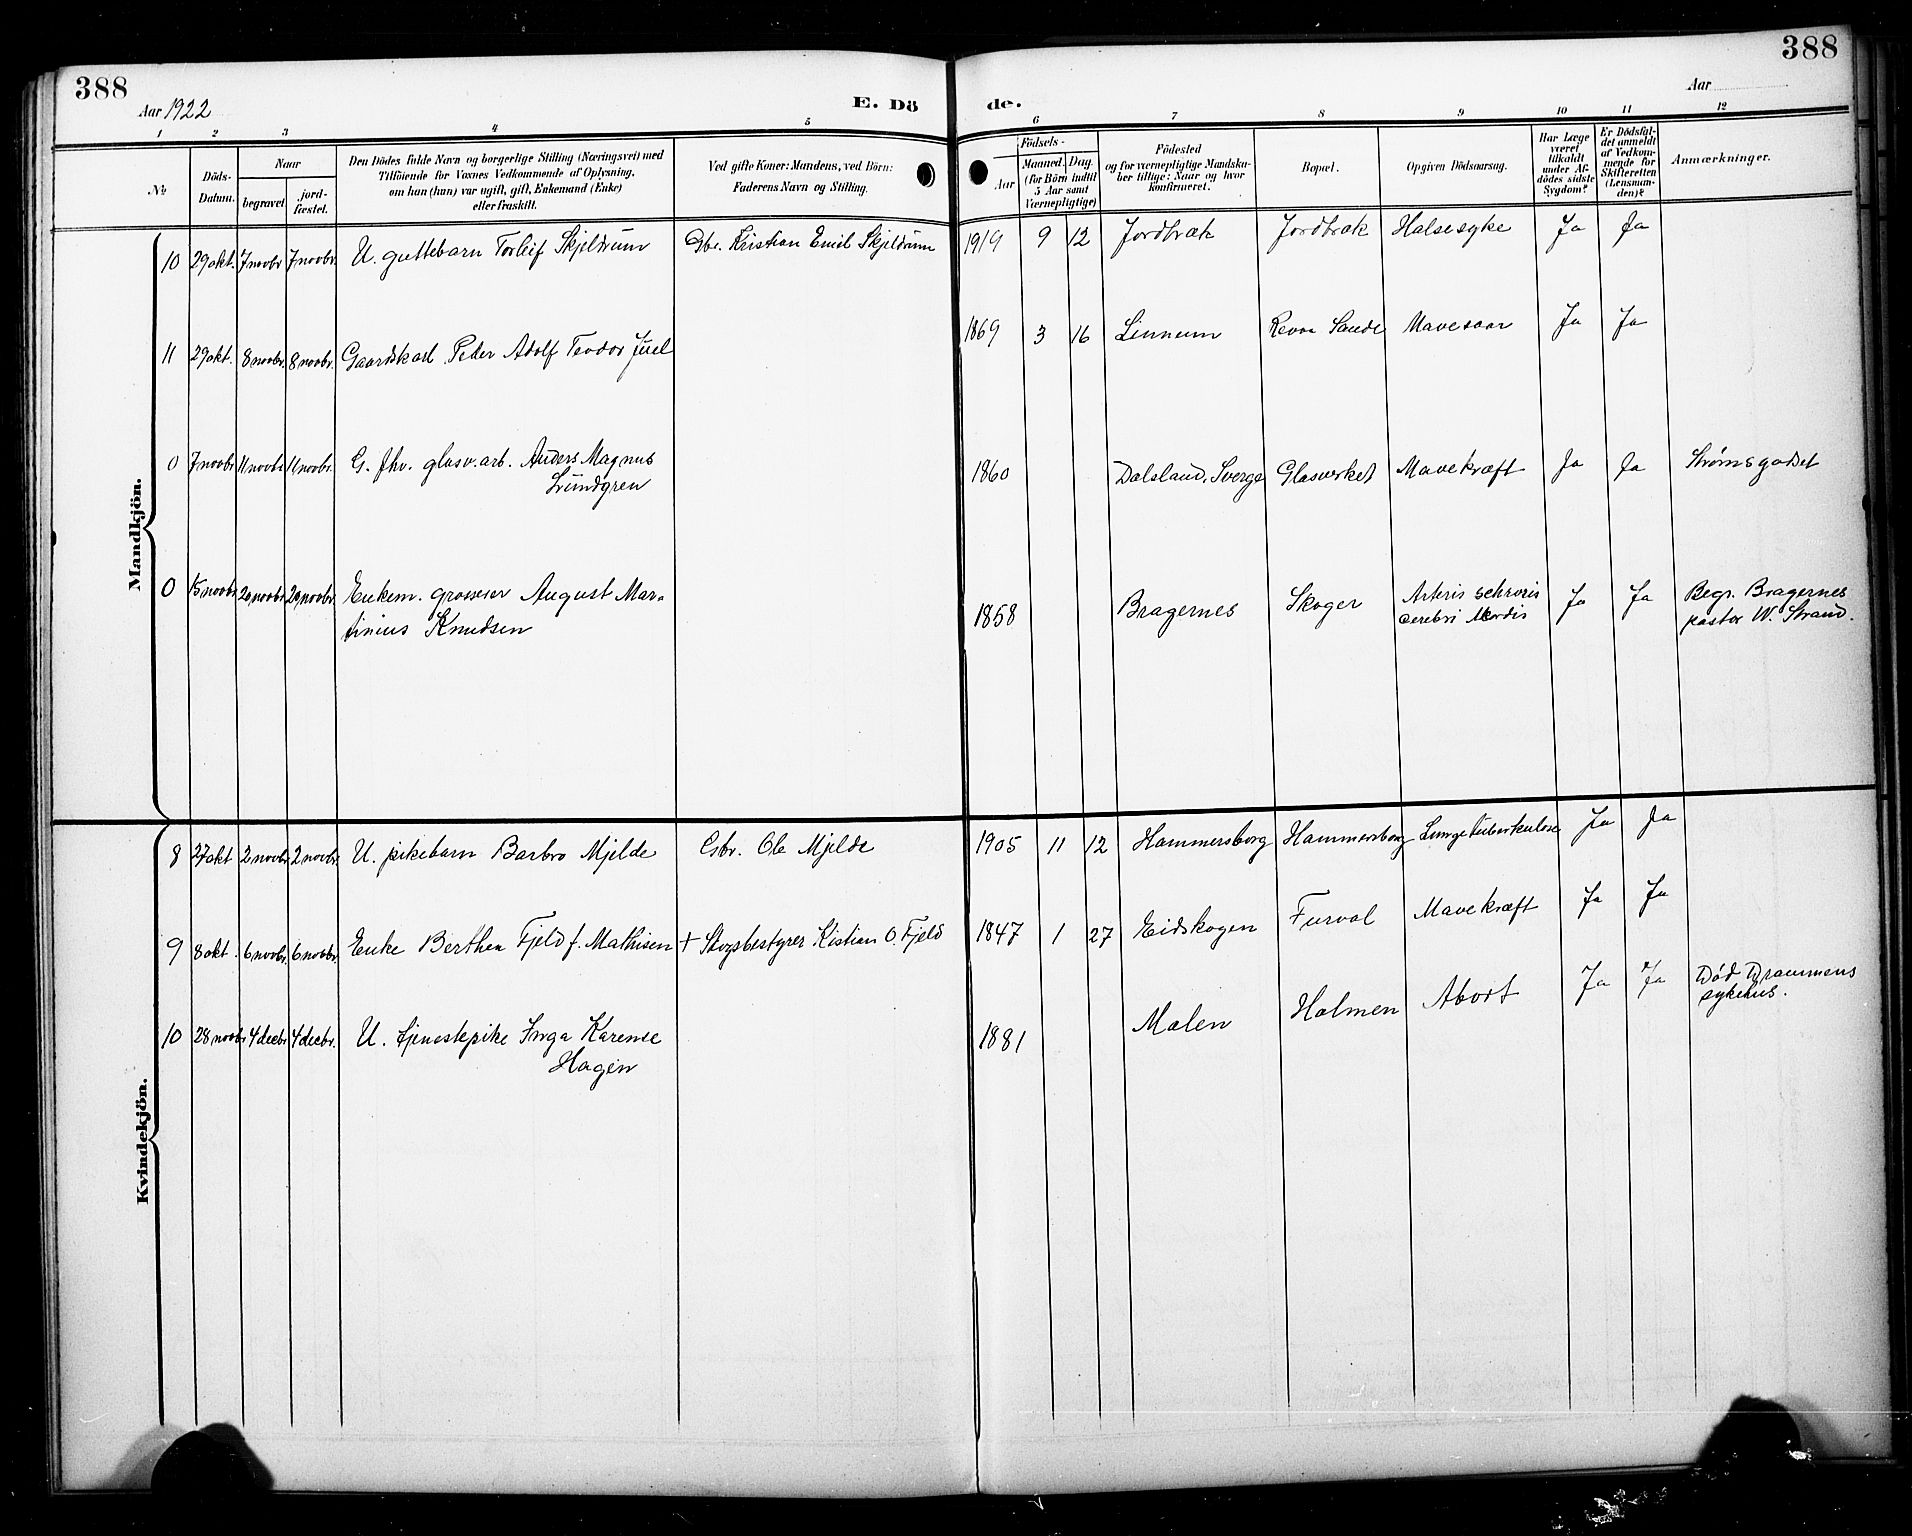 388
388
Aar 1922
E. Dö
de.
Aar
1 2 3 4 5 6 7 8 9 10 11 12
No
Döds-
Datum.
Naar
begravet.
jord-
fæstet.
Den Dödes fulde Navn og borgerlige Stilling (Næringsvei) med
Tilföiende for Voxnes Vedkommende af Oplysning,
om han (hun) var ugift, gift, Enkemand (Enke)
eller fraskilt.
Ved gifte Koner: Mandens, ved Börn:
Faderens Navn og Stilling.
Födsels-
Aar
Maaned. Dag.
(for Börn indtil
5 Aar samt
Værnepligtige)
Födested
og for værnepligtige Mandska-
ber tillige: Naar og hvor
konfirmeret.
Bopæl.
Opgiven Dödsaarsag.
Har Læge
været
tilkaldt
under Af-
dödes sidste
Sygdom?
Er Dödsfal-
det anmeldt
af Vedkom-
mende for
Skifteretten
(Lensman-
den)?
Anmærkninger.
Mandkjön.
10 29 okt. 7 novbr 7 novbr. U. guttebarn Torleif Skjeldrum Gbr. Kristian Emil Skjeldrum 1919 9 12 Jordbræk Jordbræk Halsesyke Ja Ja
11 29 okt. 8 novbr. 8 novbr. Gaardskarl Peder Adolf Teodor Juel 1869 3 16 Linnum Revaa Sande Mavesaar Ja Ja
0 7 novbr 11 novbr 11 novbr. G. fhv. glasv. arb. Anders Magnus
Lundgren 1860 Dalsland, Sverge Glasverket Mavekræft Ja Ja Strømsgodset
0 15 novbr 20 novbr 20 novbr. Enkem. grosserer August Mar-
tinius Knudsen 1858 Bragernes Skoger cerebri Ja Ja Begr. Bragernes
pastor W. Strand.
Kvindekjön.
8 27 okt 2 novbr 2 novbr. U. pikebarn Barbro Mjelde Gbr. Ole Mjelde 1905 11 12 Hammersborg Hammersborg Lungetuberkulose Ja Ja
9 8 okt. 6 novbr. 6 novbr. Enke Berthea Fjeld f. Mathisen + Skogsbestyrer Kistian O. Fjeld 1847 1 27 Eidskogen Furval Mavekræft Ja Ja
10 28 novbr 4 decbr 4 decbr. U. tjenestepike Inga Karense
Hagen 1881 Malen Holmen Abort Ja Ja Död Drammens
sykehus.